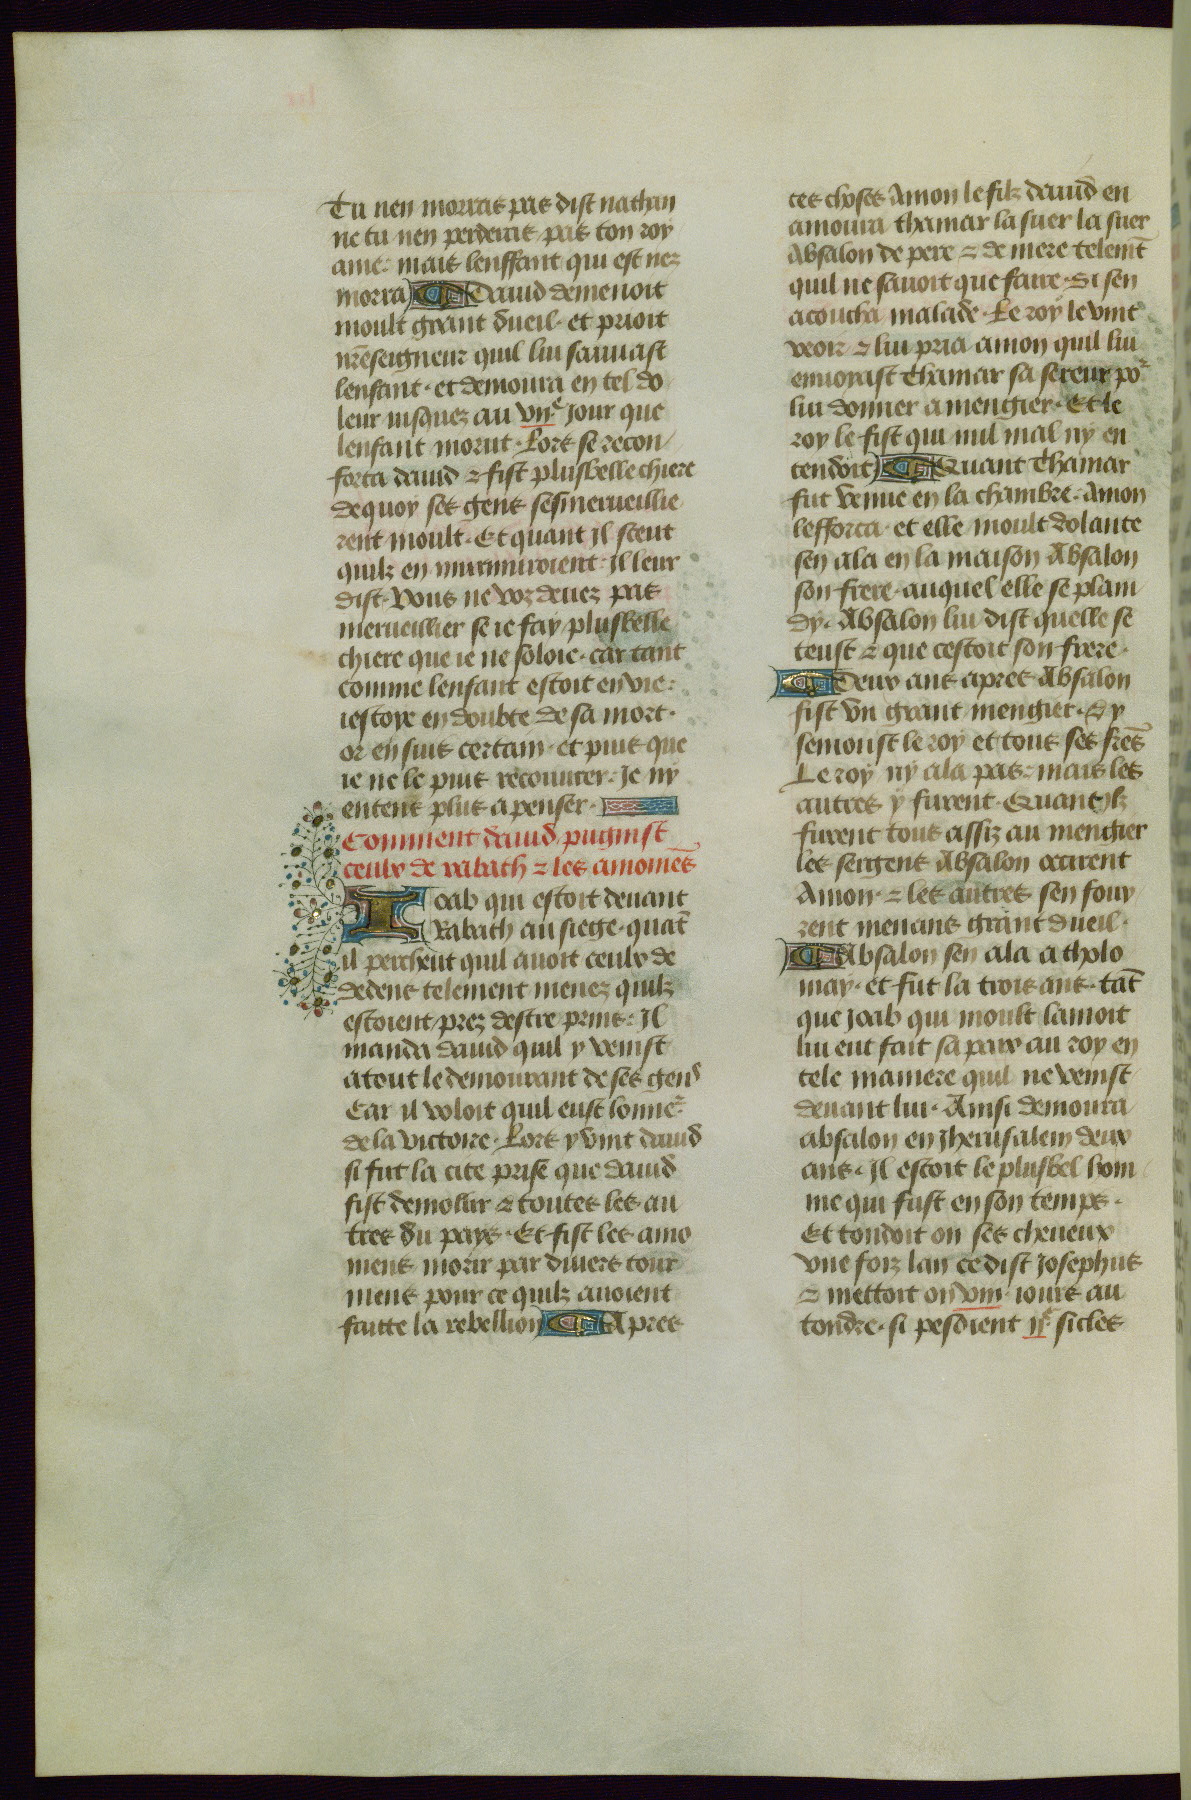 Tu nen morras pas dist nathan
ne tu nen perderas pas ton roy
ame. mais lenffant qui est nez
morra Dauid demenoit
moult grant dueil. et prioit
nr̄eseigneur quil lui sauuast
lenfant. et demoura en tel do
leur iusquez au viiͤ Jour que
lenfant morut. Lors se recon
forta dauid ⁊ fist plusbelle chiere
dequoy ses gens sesmerueillie
rent moult. Et quant jl sceut
quilz en murmuroient. Jl leur
dist. Vous ne voz deuez pas
merueillier se ie fay plusbelle
chiere que ie ne soloie. car tant
comme lenfant estoit en vie.
iestoye en doubte de sa mort.
or en suis certain. et puis que
ie ne le puis recouurer. Je ny
entens plus a penser.
Comment dauid pugnist
ceulx de rabath ⁊ les amonnēs
Ioab qui estoit deuant
Rabath au siege. quāt
il percheut quil auoit ceulx de
dedens telement menez quilz
estoient prez destre prins. Jl
manda dauid quil y venist
atout le demourant de ses gens
Car il voloit quil eust lonneʳ
de la victoire. Lors y vint dauid
si fut la cite prise que dauid
fist demolir ⁊ toutes les au
tres du pays. Et fist les amo
niens morir par diuers tour
mens pour ce quilz auoient
faitte la rebellion Apres
ces choses Amon le filz dauid en
amoura thamar la suer la suer
Absalon de pere ⁊ de mere telemt̄
quil ne sauoit que faire. Si sen
acoucha malade. Le roy le vint
veoir ⁊ lui pria amon quil lui
enuoyast Thamar sa sereur poʳ
lui donner a mengier. Et le
roy le fist qui nul mal ny en
tendoit Quant Thamar
fut venue en la chambre. Amon
lefforca. et elle moult dolante
sen ala en la maison Absalon
son frere. auquel elle se plain
dy. Absalon lui dist quelle se
teust ⁊ que cestoit son frere.
Deux ans apres Absalon
fist vn grant mengier. Sy
semonst le roy et tous ses frēs
Le roy ny ala pas. mais les
autres y furent. Quant ilz
furent tous assiz au mengier
les sergens Absalon occirent
Amon. ⁊ les autres sen fouy
rent menans grant dueil.
Absalon sen ala a tholo
may. et fut la trois ans. tāt
que joab qui moult lamoit
lui eut fait sa paix au roy en
tele maniere quil ne venist
deuant lui. Ainsi demoura
absalon en Jherusalem deux
ans. Jl estoit le plusbel hom
me qui fust en son temps.
Et tondoit on ses cheueux
vne foiz lan ce dist Josephus
⁊ mettoit on viii. iours au
tondre. si pesoient iiͨ sicles